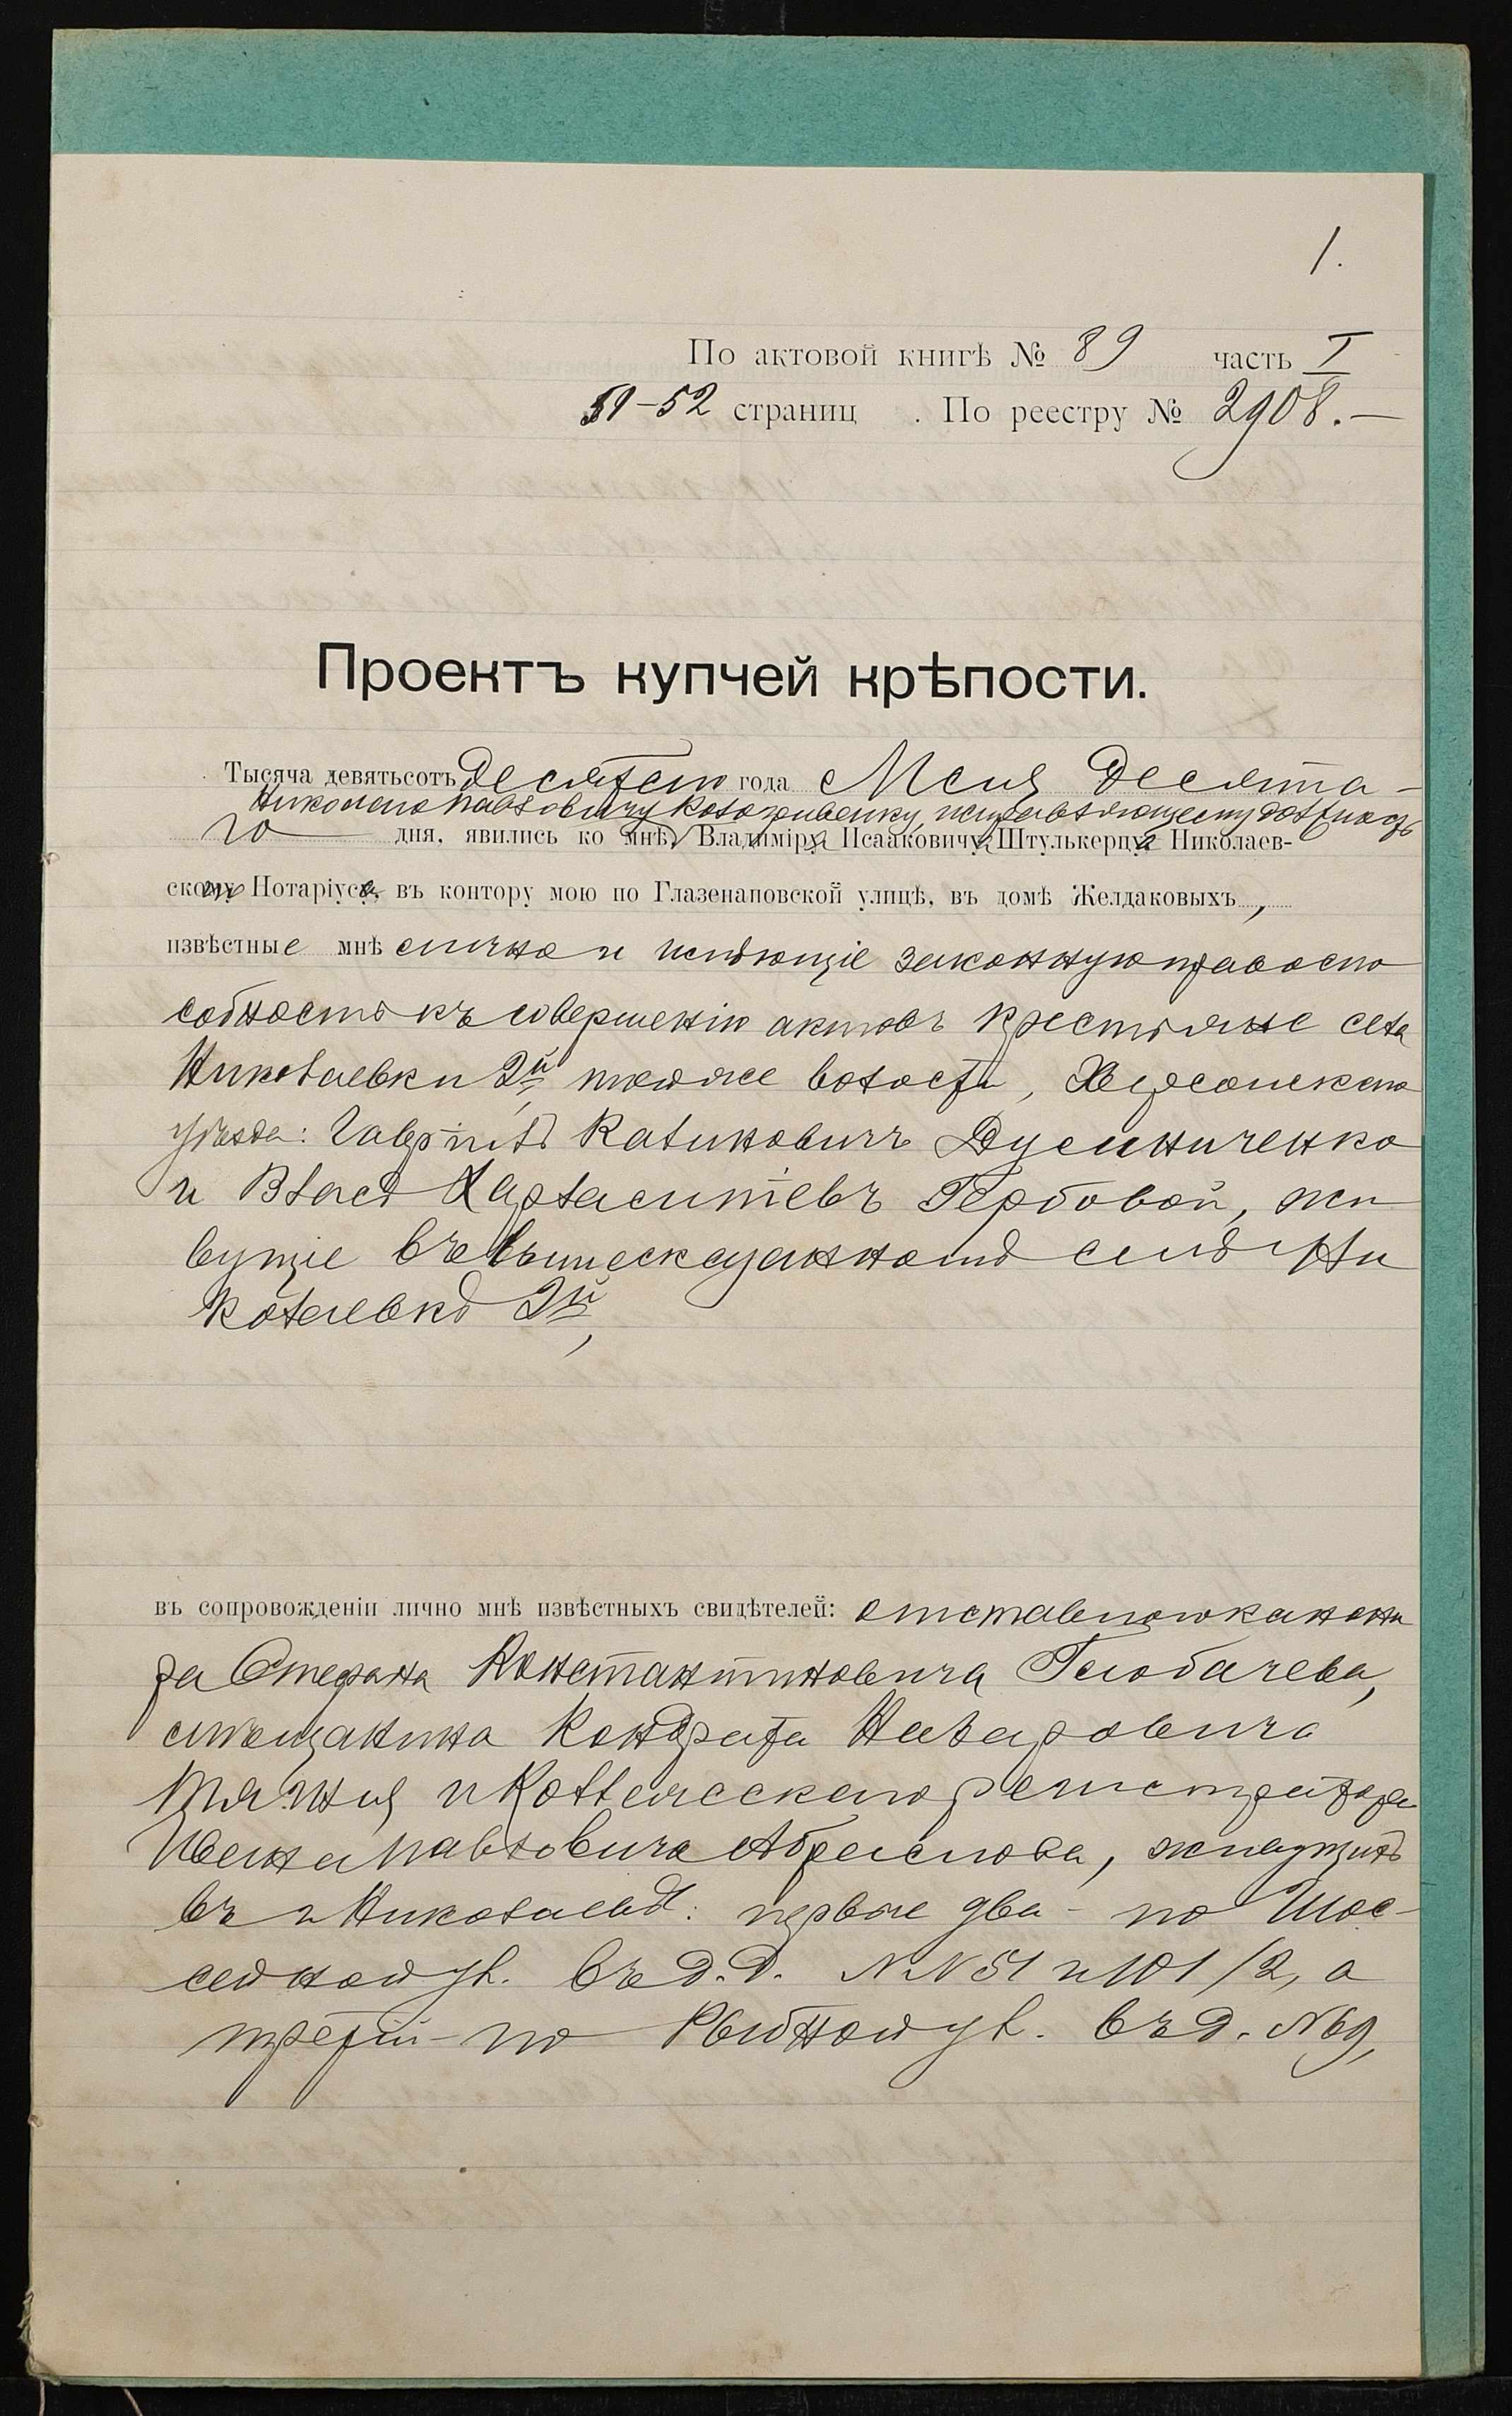 1.
По актовой книгѣ № 89 часть I
51-52 страниц . По реестру № 2908.—
Проектъ купчей крѣпости.
Тысяча девятьсотъ десятаго года Мая десята-
Николаю Павловичу исправляющему должность
го дня, явились ко мнѣ, Владиміру Исааковичу Штулькерцу Николаев-
скому Нотаріуса, въ контору мою по Глазенаповской улицѣ, въ домѣ Желдаковыхъ,
извѣстные мнѣ лично и имѣющіе законную правоспо
собность къ совершенію актовъ крестьяне села
Николаевки 2й, тойже волости, Херсонскаго
уѣзда: Гавріилъ Калиновичъ Дусиниченко
и Власъ Харлампіевъ Гербовой, жи
вущіе въ вышесказанномъ селѣ Ни
колаевкѣ 2й,
въ сопровожденіи лично мнѣ извѣстныхъ свидѣтелей: отставного канони
ра Стефана Константиновича Глобачева,
мѣщанина Кондрата Назаровича
и Коллежскаго регистратора
Ивана Павловича Абрамова, живущихъ
въ г. Николаевѣ: первые два - по Шос-
сейной ул. въ д.д. №№ 51 и 101/2, а
третій - по Рыбной ул. въ д. № 9,